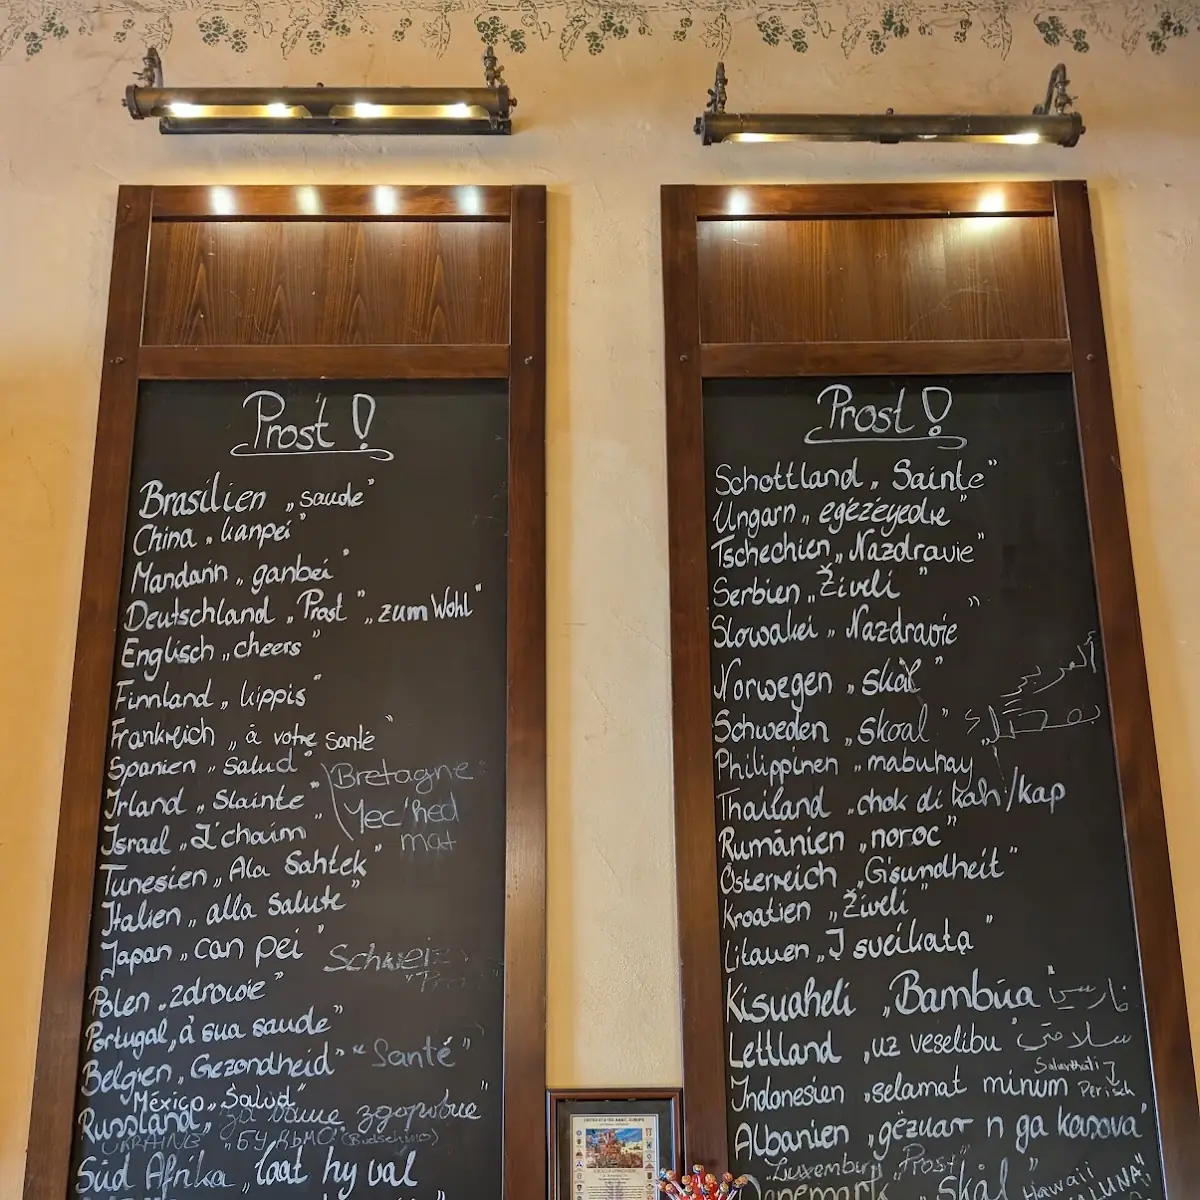 Prost!
Brasilien „saude"
China „kanpei"
Mandarin „ganbei"
Deutschland „Prost" „zum Wohl"
Englisch „cheers"
Finnland „kippis"
Frankreich „à votre santé"
Spanien „Salud"
Irland „Slainte"
Bretagne
Yec'hed
mat
Israel „L'chaim"
Tunesien „Ala Sahtek"
Italien „alla Salute"
Japan „can pei"
Schweiz
Polen „zdrowie"
Portugal „á sua saude"
Belgien „Gezondheid" "Santé"
México „Salud"
Russland „за ваше здоровие"
UKRAINE "БУДЬМО" (Budschmo)
Süd Afrika „laat hy val
Prost!
Schottland „Sainte"
Ungarn „egézéyedre"
Tschechien „Nazdravie"
Serbien „Živeli"
Slowakei „Nazdravie"
Norwegen „skål"
Schweden „Skoal"
Philippinen „mabuhay
Thailand „chok di kah/kap
Rumänien „noroc"
Österreich „G'sundheit"
Kroatien „Živeli"
Litauen „I sveikatą"
Kisuaheli „Bambúa"
فارسی
Lettland „uz veselibu"
سلامتی
Indonesien „selamat minum
Persich
Albanien „gëzuar n ga kosova"
"Luxemburg "Prost"
Danemark „Skål"
Hawaii